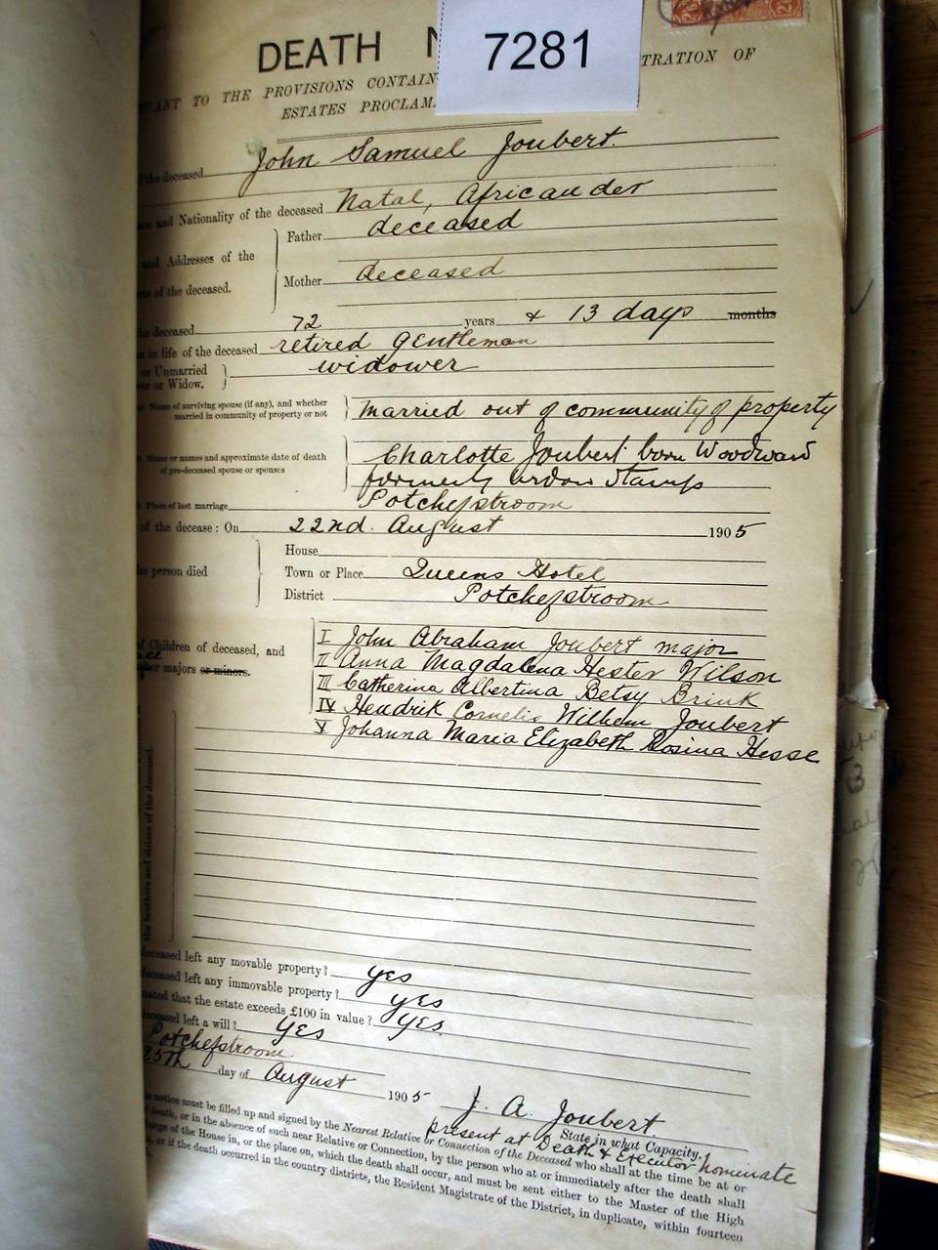 7281
DEATH N
TRATION OF
TO THE PROVISIONS CONTAIN
ESTATES PROCLAM
the deceased John Samuel Joubert.
and Nationality of the deceased Natal, Africander
Father deceased
and Addresses of the
of the deceased.
Mother deceased
the deceased 72 years & 13 days months
in life of the deceased retired gentleman
or Unmarried
or Widow. widower
Name of surviving spouse (if any), and whether
married in community of property or not
Married out of community of property
Name or names and approximate date of death
of pre-deceased spouse or spouses
Charlotte Joubert born Woodward
formerly Stamp
Place of last marriage Potchefstroom
of the decease: On 22nd. August 1905
House
person died
Town or Place Queens Hotel
District Potchefstroom
of Children of deceased, and
majors or minors.
I John Abraham Joubert major
II Anna Magdalena Hester Wilson
III Catherina Albertina Betsy Brink
IV Hendrik Cornelis Wilhelm Joubert
V Johanna Maria Elizabeth Rosina Hesse
the brothers and sisters of the deceased.
deceased left any movable property? yes
deceased left any immovable property? yes
that the estate exceeds £100 in value? yes
deceased left a will? yes
Potchefstroom
25th day of August 1905
J. A. Joubert
State in what Capacity.
present at Death & Executor nominate
notice must be filled up and signed by the Nearest Relative or Connection of the Deceased who shall at the time be at or
death, or in the absence of such near Relative or Connection, by the person who at or immediately after the death shall
charge of the House in, or the place on, which the death shall occur, and must be sent either to the Master of the High
or if the death occurred in the country districts, the Resident Magistrate of the District, in duplicate, within fourteen